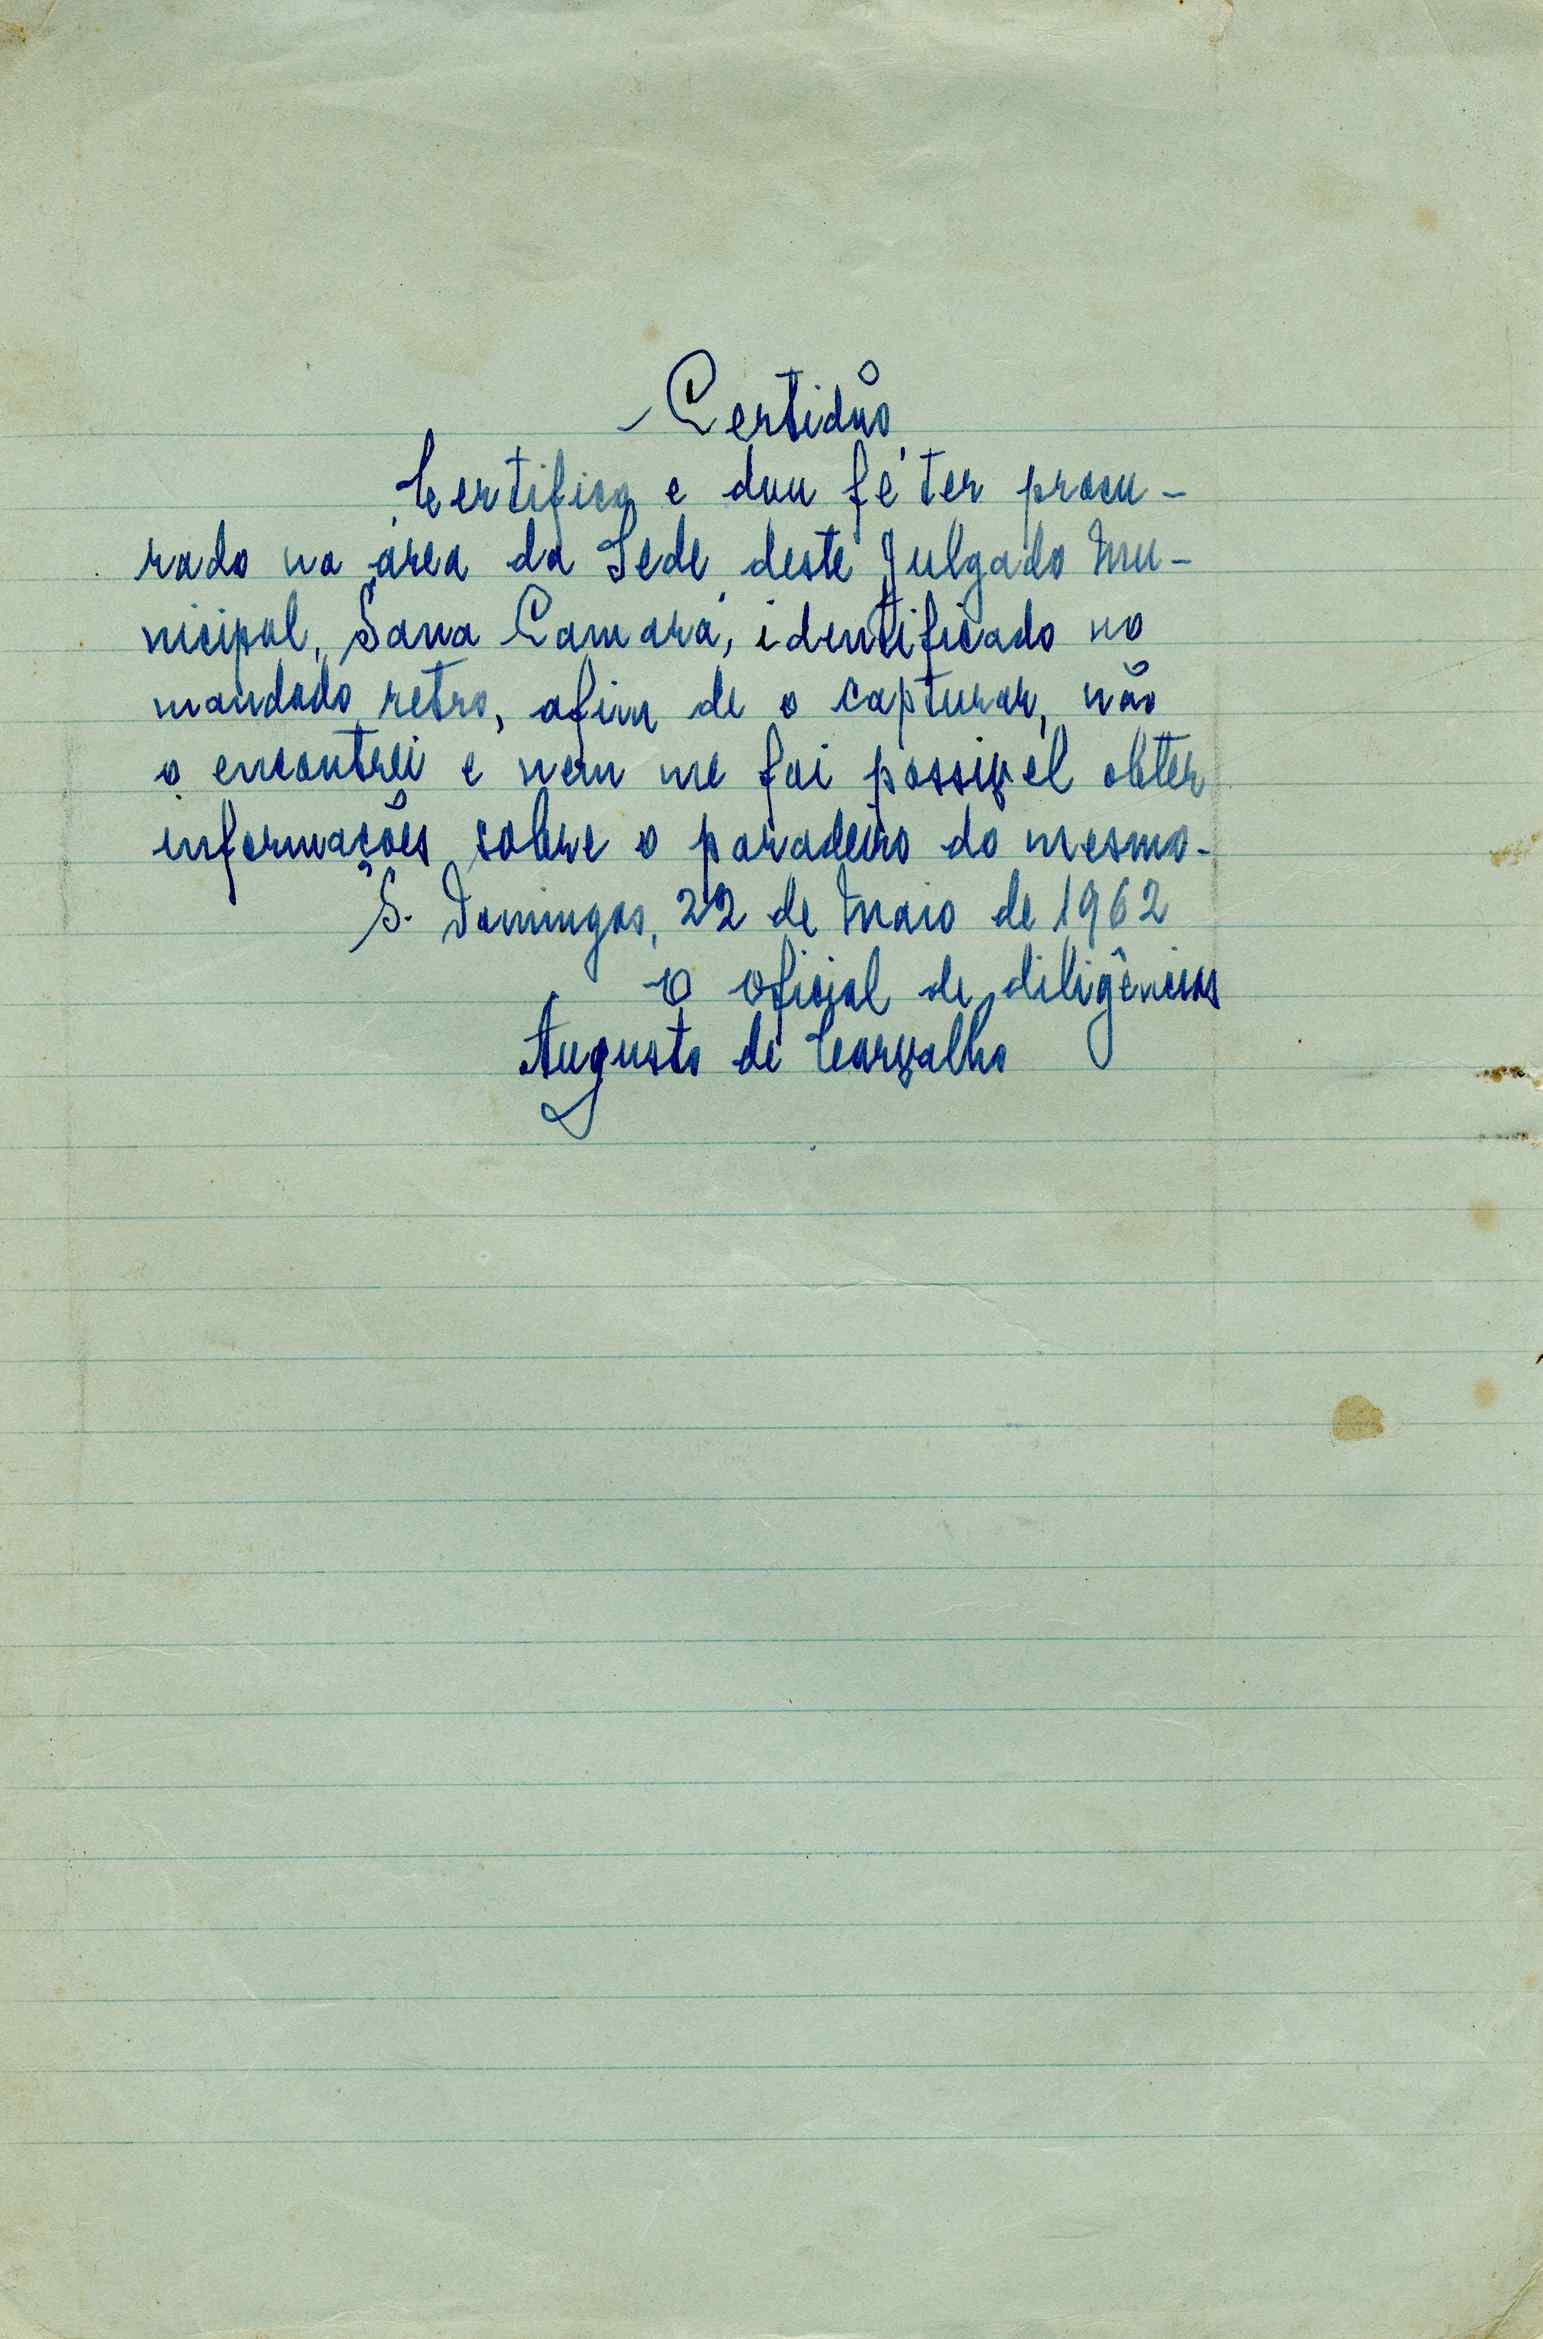 - Certidão
Certifico e dou fé ter procu-
rado na área da Sede deste Julgado Mu-
nicipal, Sana Camará, identificado no
mandado retro, afim de o capturar, não
o encontrei e nem me foi possivel obter
informações sobre o paradeiro do mesmo-
S. Domingos, 22 de Maio de 1962
O oficial de diligências
Augusto de Carvalho